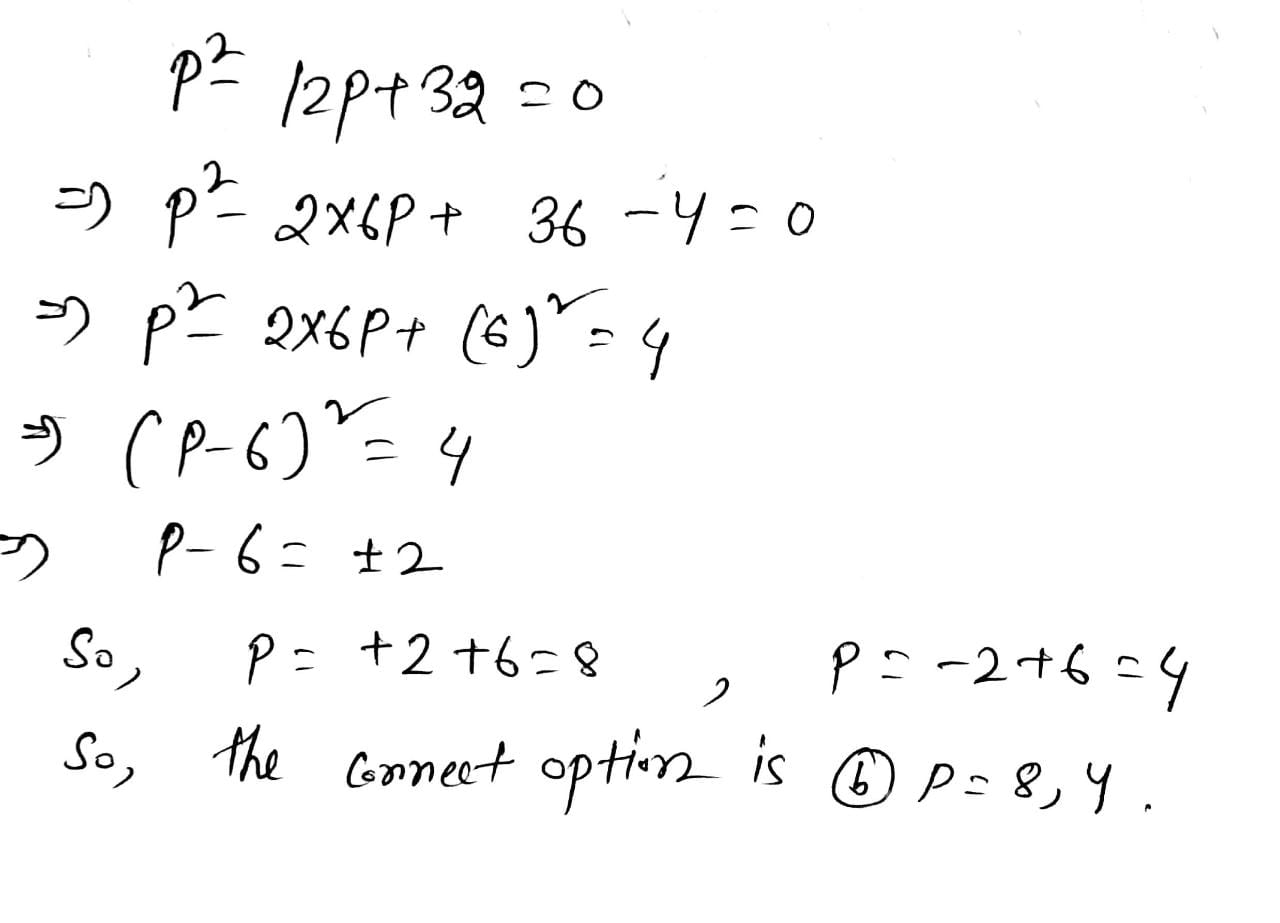 p² - 12p + 32 = 0
⇒ p² - 2×6p + 36 - 4 = 0
⇒ p² - 2×6p + (6)² = 4
⇒ (p-6)² = 4
⇒ p - 6 = ±2
So, p = +2 + 6 = 8 , p = -2 + 6 = 4
So, the correct option is ⓑ p = 8, 4 .